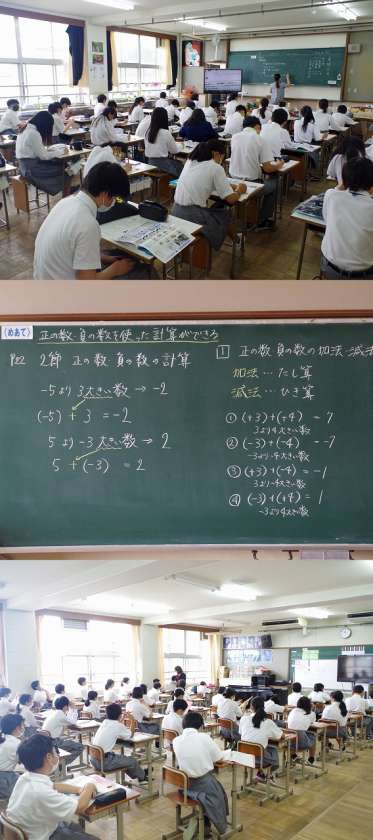 〈めあて〉 正の数・負の数を使った計算ができる
P22 2節 正の数 負の数の計算
-5より3大きい数 → -2
(-5) + 3 = -2
5より -3大きい数 → 2
5 + (-3) = 2
1 正の数 負の数の加法・減法
加法…たし算
減法…ひき算
① (+3)+(+4) = 7
3より4大きい数
② (-3)+(-4) = -7
-3より-4大きい数
③ (+3)+(-4) = -1
3より-4大きい数
④ (-3)+(+4) = 1
-3より4大きい数